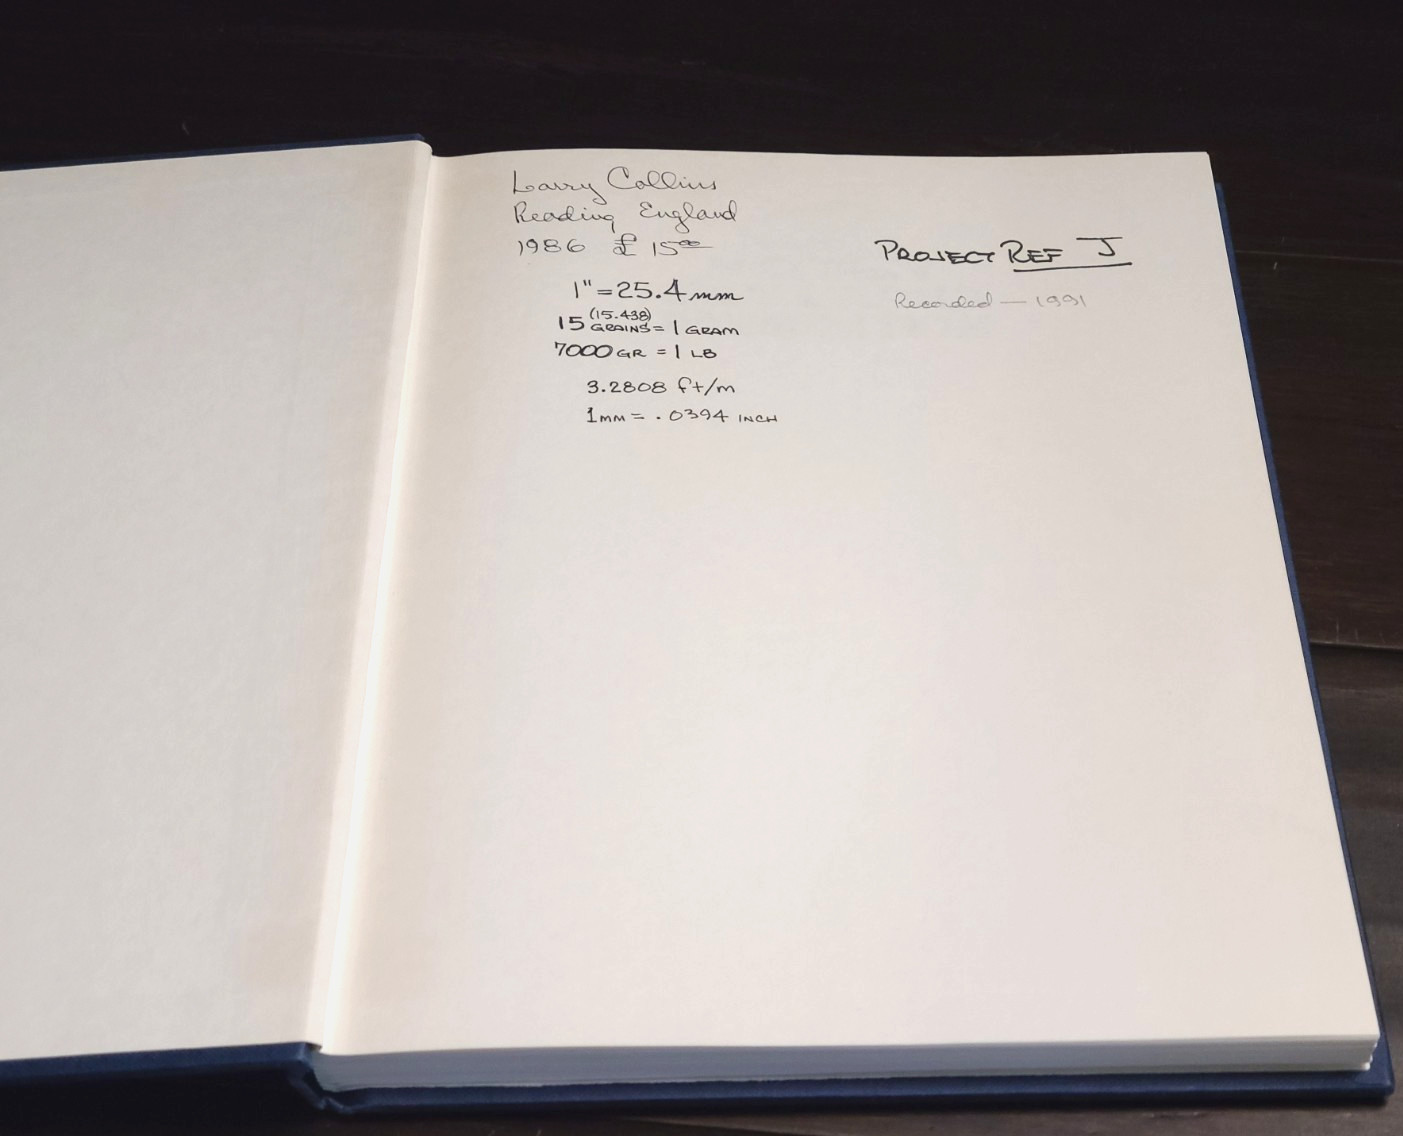 Larry Collins
Reading England
1986 £ 15.00
1" = 25.4 mm
(15.438)
15 GRAINS = 1 GRAM
7000 GR = 1 LB
3.2808 ft/m
1mm = .0394 INCH
PROJECT REF J
Recorded — 1991